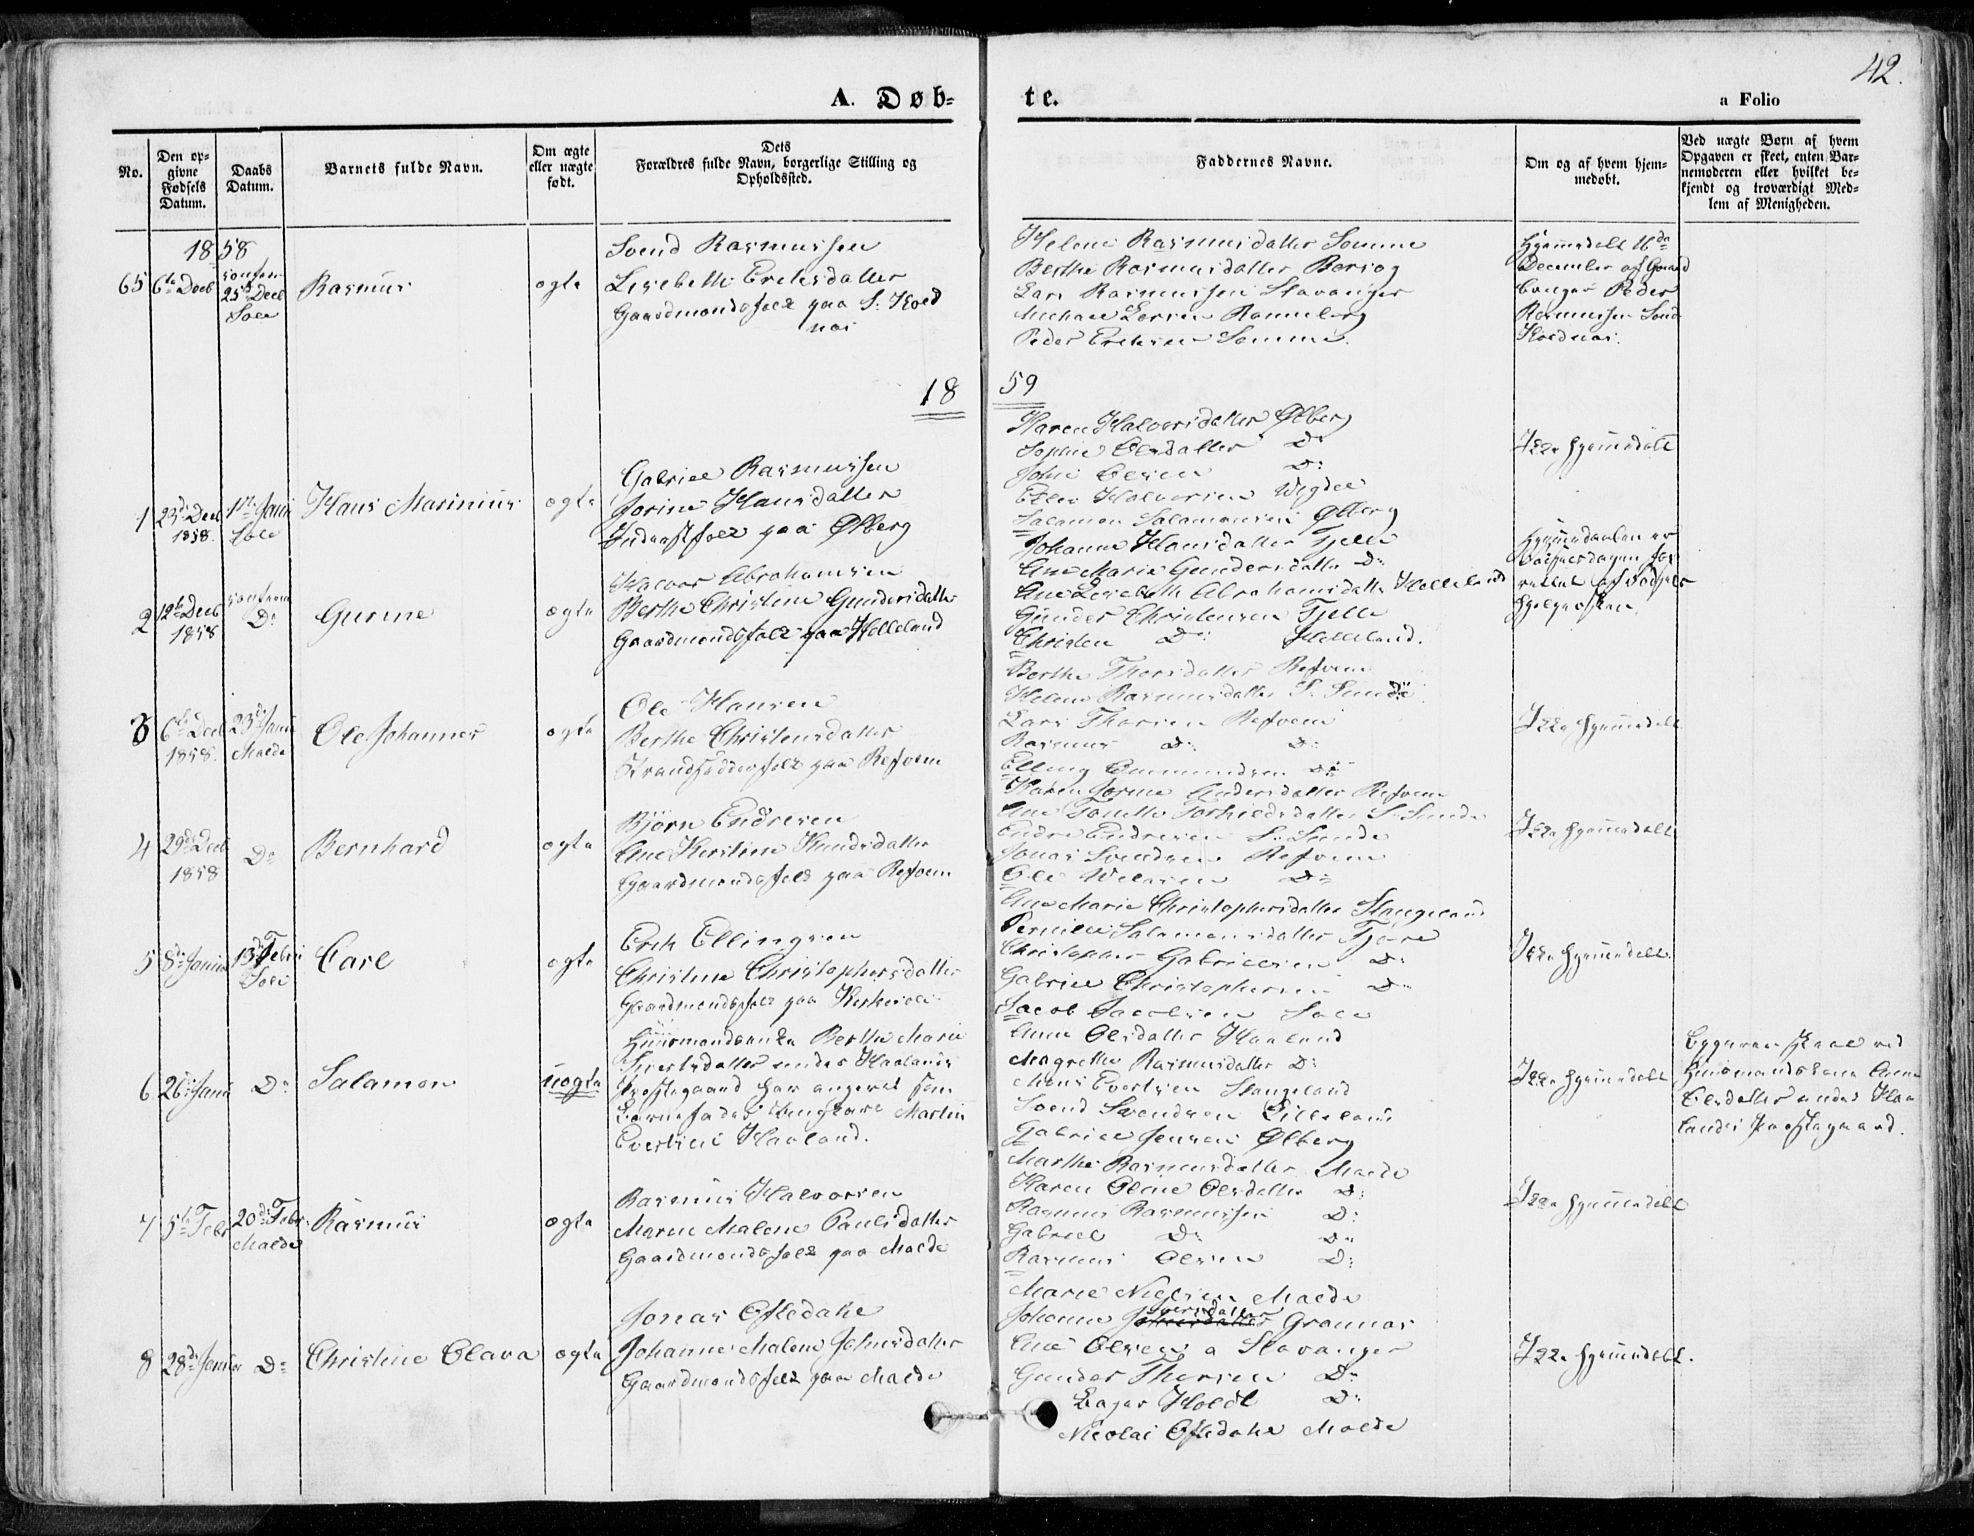 42.
A. Døb-
te.
a Folio
No.
Den op-
givne
Fødsels
Datum.
Daabs
Datum.
Barnets fulde Navn.
Om ægte
eller uægte
født.
Dets
Forældres fulde Navn, borgerlige Stilling og
Opholdssted.
Faddernes Navne.
Om og af hvem hjem-
medøbt.
Ved uægte Børn af hvem
Opgaven er skeet, enten Bar-
nemoderen eller hvilket be-
kjendt og troværdigt Med-
lem af Menigheden.
1858
65 6te Decb
25de Decb
Sole
Rasmus
ægte
Svend Rasmussen
Lisebeth Eriksdatter
Gaardmandsfolk paa S. Kold
næs
Helene Rasmusdatter Sømme
Berthe Rasmusdatter Bersog
Lars Rasmussen Stavanger
Michael Larsen Ranneberg
Peder Eriksen Sømme.
Hjemmedøbt 16de
December af Gaard
bruger Peder
Rasmussen Sønd
Koldnæs.
1859
1 23de Decb
1858.
1ste Janu
Sole
Hans Marinius
ægte
Gabriel Rasmussen
Jorine Hansdatter
Inderstfolk paa Ølberg
Karen Halvorsdatter Ølberg
Sophie Olsdatter Do
John Olsen Do
Halvorsen Wigdel
Salamon Salamonsen Ølberg
Ikke hjemmedøbt
2 12te Decb
1858
Do
Gurine
ægte
Halvor Abrahamsen
Berthe Christine Gundersdatter
Gaardmandsfolk paa Helleland
Johanne Hansdatter Tjelle
Ane Marie Gundersdatter Do
Ane Lisebeth Abrahamsdatter Helleland
Gunder Christensen Tjelle
Christen Do Helleland.
Hjemmedaaben er
forret
af Fødsels
hjelpersken
3 6te Decb
1858.
23de Janu
Malde
Ole Johannes
ægte
Ole Hansen
Berthe Christensdatter
Strandsidderfolk paa Refvem
Berthe Thorsdatter Refvem
Helene Rasmusdatter S. Sunde
Lars Thorsen Refvem
Rasmus Do Do
Elling Ommundsen Do
Ikke hjemmedøbt
4 29de Decb
1858
Do
Bernhard
ægte
Bjørn Endresen
Ane Kirstine Knudsdatter
Gaardmandsfolk paa Refvem
Karen Jorine Andersdatter Refvem
Ane Tonette Torkildsdatter S. Sunde
Endre Endresen S. Sunde
Jonas Svendsen Refvem
Ole Do
Ikke hjemmedøbt
5 8de Janu
13de Febr
Sole
Carl
ægte
Erik Ellingsen
Christine Christophersdatter
Gaardmandsfolk paa
Ane Marie Christophersdatter Stangeland
Pernille Salamonsdatter Tjøre
Christopher Gabrielsen Do
Gabriel Christophersen Do
Jacob Jacobsen Sole
Ikke hjemmedøbt
6 26de Janu
Do
Salamon
uægte
Huusmandsenke Berthe Marie
Sivertsdatter under Haalands
Præstegaard har angivet som
Barnefader Ungkarl Martin
Evertsen Haaland.
Anne Olsdatter Haaland
Magrethe Rasmusdatter Do
Mons Evertsen Stangeland
Svend Svendsen
Gabriel Jensen Ølberg
Ikke hjemmedøbt
Opgaven skeet ved
Huusmandskone Anne
Olsdatter under Haa
lands Præstegaard.
7 5te Febr
20de Febr
Malde
Rasmus
ægte
Rasmus Halvorsen
Maren Malene Paulsdatter
Gaardmandsfolk paa Malde
Marthe Rasmusdatter Malde
Karen Oline Olsdatter Do
Rasmus Rasmussen Do
Gabriel Do Do
Rasmus Olsen Do
Ikke hjemmedøbt
8 28de Janu
Do
Christine Olava
ægte
Jonas Oftedahl
Johanne Malene Johnsdatter
Gaardmandsfolk paa Malde
Marie Nielsen Malde
Johanne Iversdatter Grannæs
Ane Olsen a Stavanger
Gunder Thorsen Do
Eager Holdt Do
Nicolai Oftedahl Malde
Ikke hjemmedøbt.